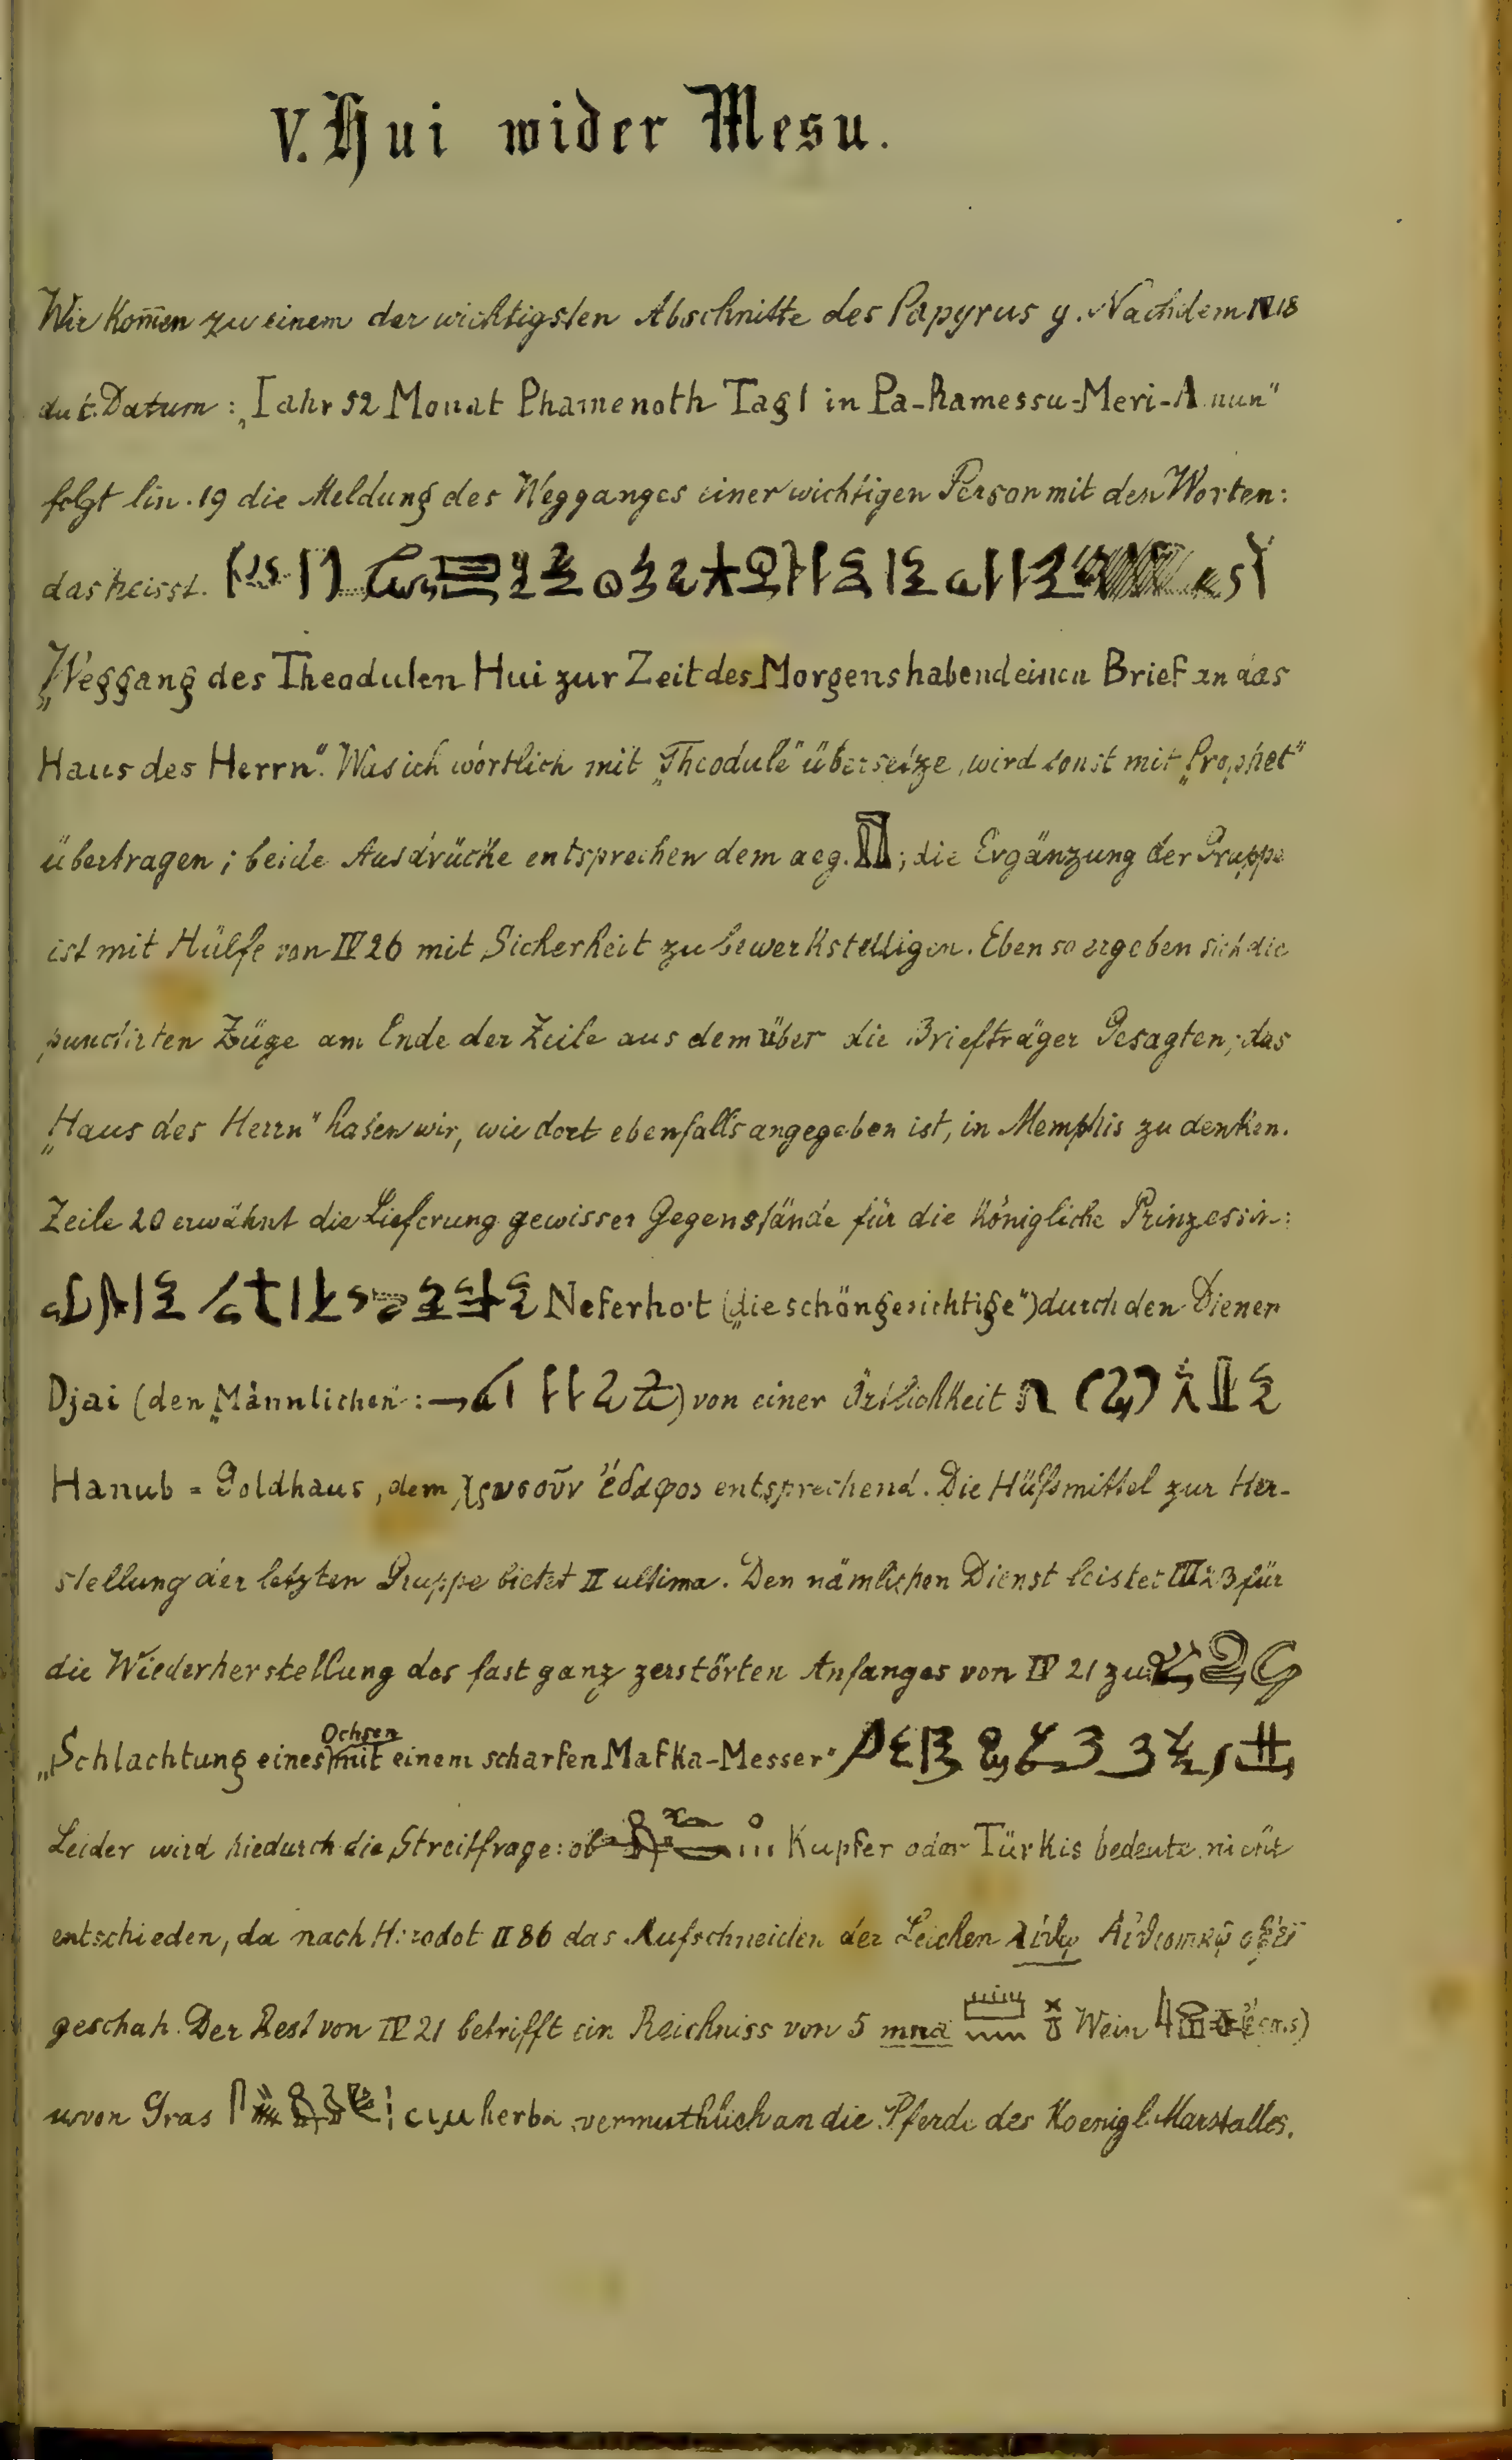 V. Hui wider Mesu.
Wir kom̄en zu einem der wichtigsten Abschnitte des Papyrus y. Nachdem IV 18
das Datum: „Iahr 52 Monat Phamenoth Tag 1 in Pa-Ramessu-Meri-Amun"
folgt lin. 19 die Meldung des Wegganges einer wichtigen Person mit den Worten:
das heisst.
„Weggang des Theodulen Hui zur Zeit des Morgens habend einen Brief an das
Haus des Herrn". Was ich wörtlich mit „Theodule" übersetze, wird sonst mit „Prophet"
übertragen; beide Ausdrücke entsprechen dem aeg. ; die Ergänzung der Gruppe
ist mit Hülfe von IV 26 mit Sicherheit zu bewerkstelligen. Eben so ergeben sich die
punctirten Züge am Ende der Zeile aus dem über die Briefträger Gesagten; das
„Haus des Herrn" haben wir, wie dort ebenfalls angegeben ist, in Memphis zu denken.
Zeile 20 erwähnt die Lieferung gewisser Gegenstände für die königliche Prinzessin:
Neferho·t („die schöngesichtige") durch den Diener
Djai (den „Männlichen": ) von einer Örtlichkeit
Hanub = Goldhaus, dem χρυσοῦν ἔδαφος entsprechend. Die Hülfsmittel zur Her-
stellung der letzten Gruppe bietet II ultima. Den nämlichen Dienst leistet III 23 für
die Wiederherstellung des fast ganz zerstörten Anfanges von IV 21 zu:
„Schlachtung eines Ochsen mit einem scharfen Mafka-Messer"
Leider wird hiedurch die Streitfrage: ob Kupfer oder Türkis bedeute, nicht
entschieden, da nach Herodot II 86 das Aufschneiden der Leichen λίθῳ Αἰθιοπικῷ ὀξέϊ
geschah. Der Rest von IV 21 betrifft ein Reichniss von 5 mna Wein
u. von Gras ⲥⲓⲙ herba, vermuthlich an die Pferde des Koenigl. Marstalles.